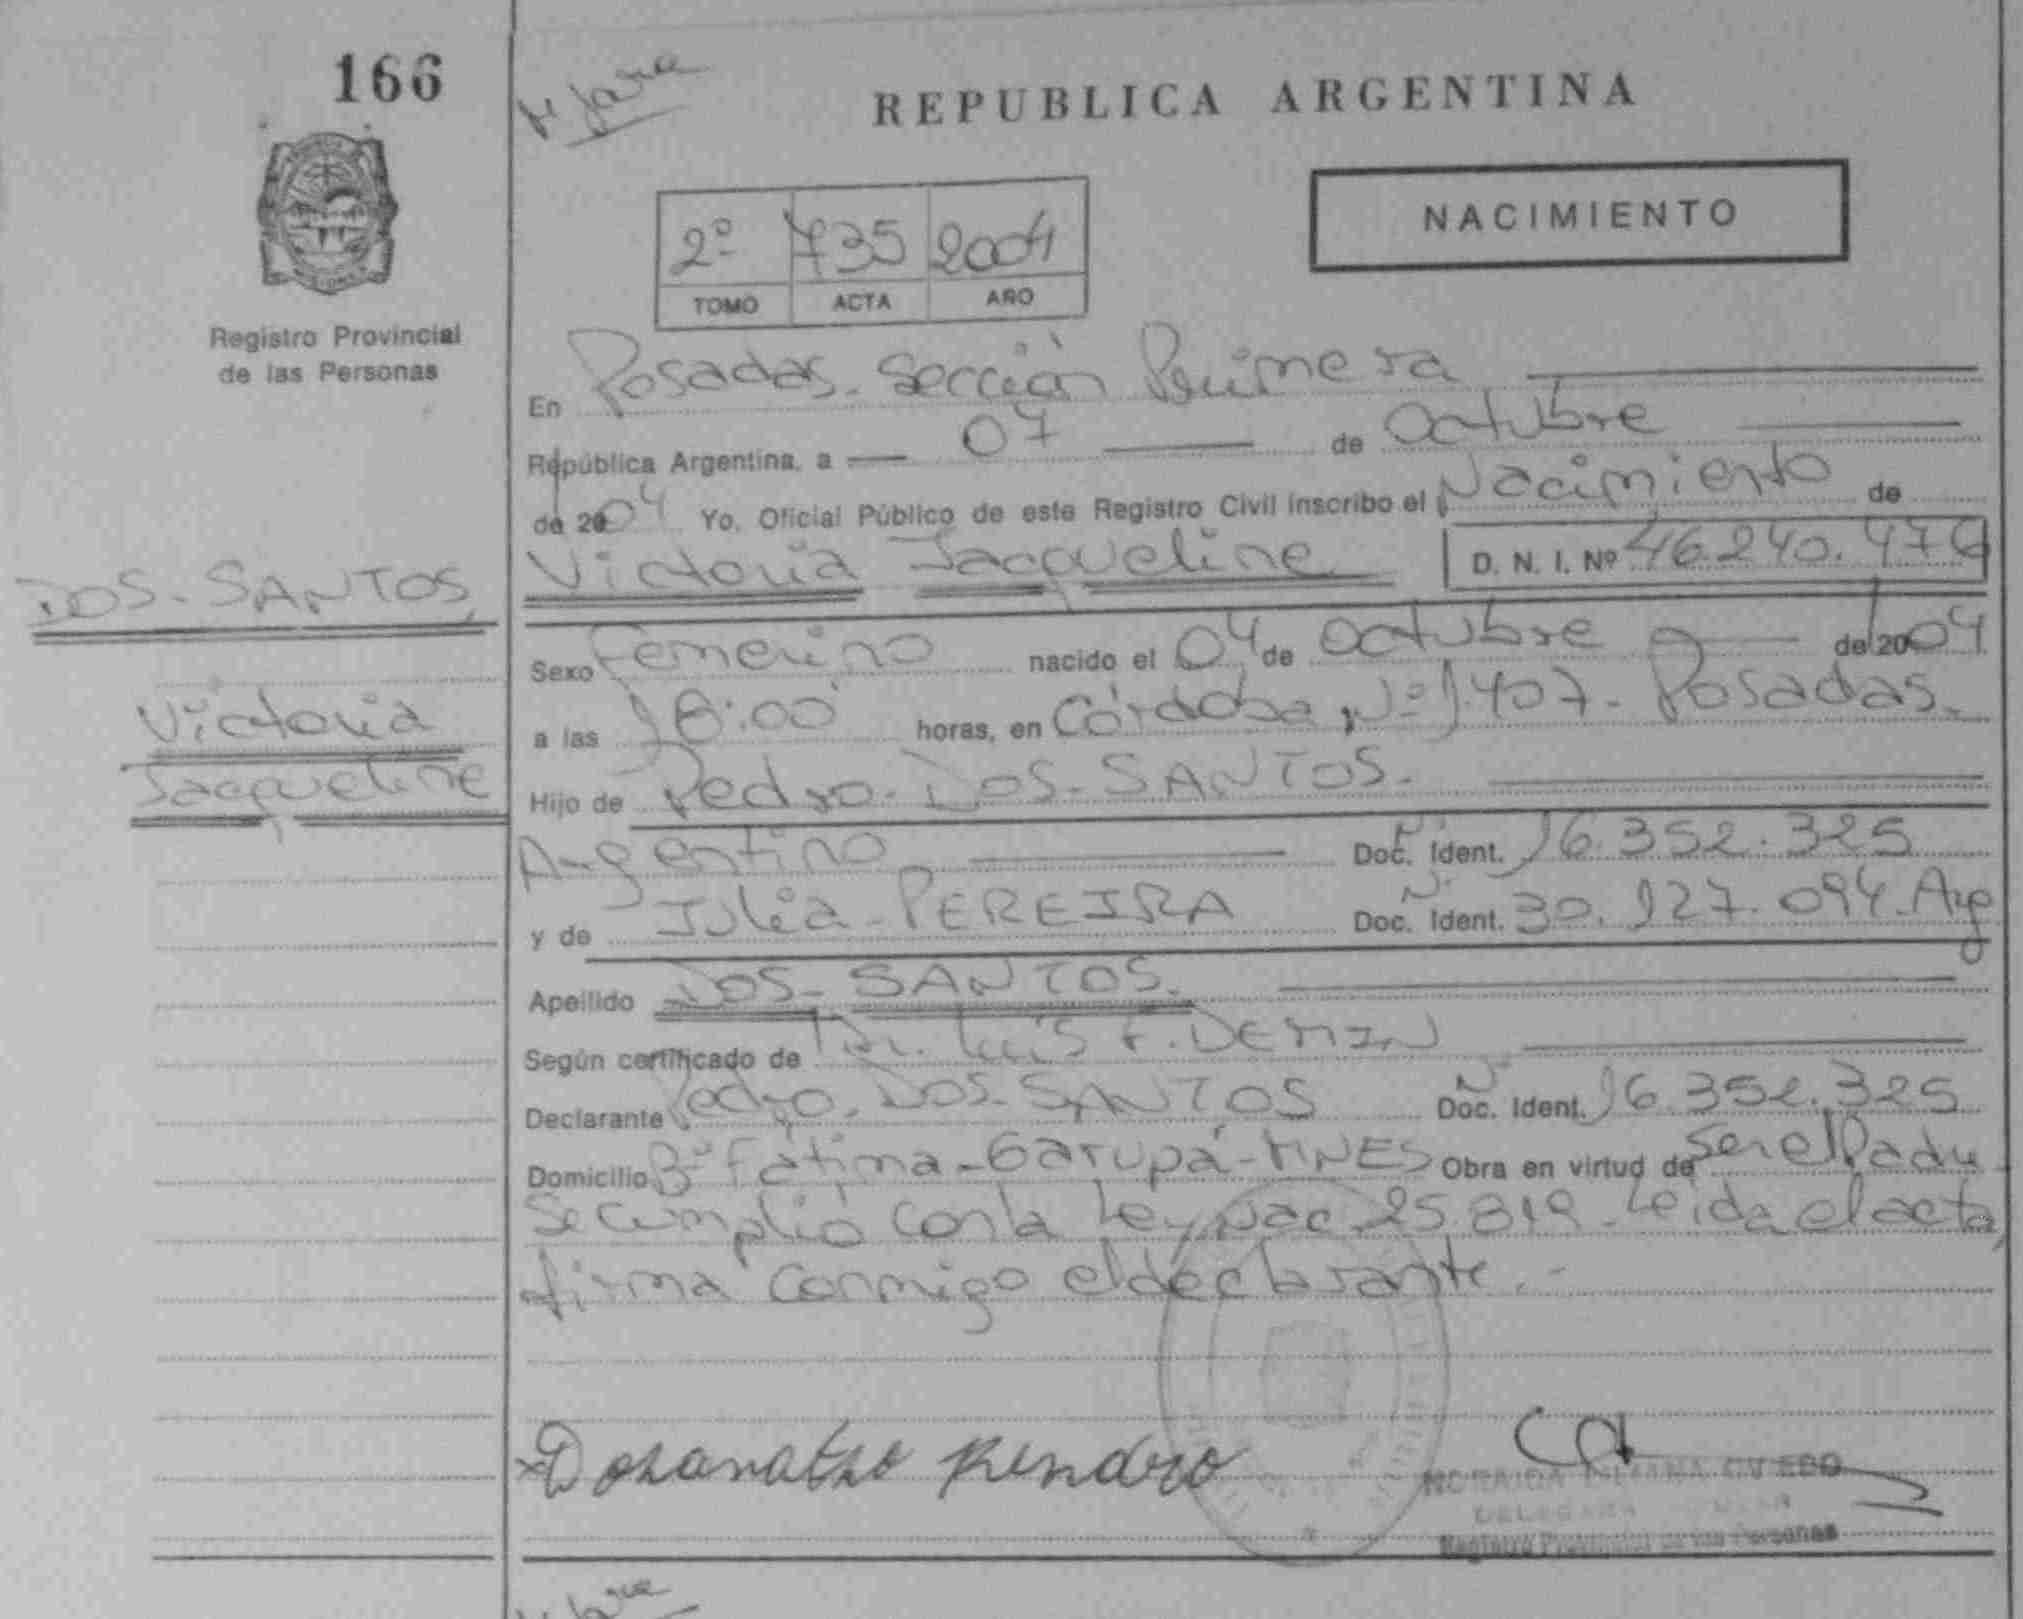 166
REPUBLICA ARGENTINA
NACIMIENTO
2º 735 2004
TOMO ACTA AÑO
Registro Provincial
de las Personas
En Posadas. Sección Primera
República Argentina, a 07 de Octubre
de 2004 Yo, Oficial Público de este Registro Civil inscribo el Nacimiento de
Victoria Jacqueline D. N. I. Nº 46.240.476
DOS-SANTOS
Victoria
Jacqueline
Sexo Femenino nacido el 04 de Octubre de 2004
a las 18:00 horas, en Córdoba Nº 1.407- Posadas.
Hijo de Pedro- DOS-SANTOS.
Argentino Doc. Ident. 16.352.325
y de Julia-PEREIRA Doc. Ident. 30.127.094. Arg
Apellido DOS-SANTOS.
Según certificado de Dr. Luis F. DEMIN
Declarante Pedro. DOS-SANTOS Doc. Ident. 16.352.325
Domicilio Bº Fátima-Garupá-MNES Obra en virtud de Ser el Padre
Se cumplió con la Ley Nac. 25.819. Leída el acta,
firma conmigo el declarante.-
Registro Provincial de las Personas